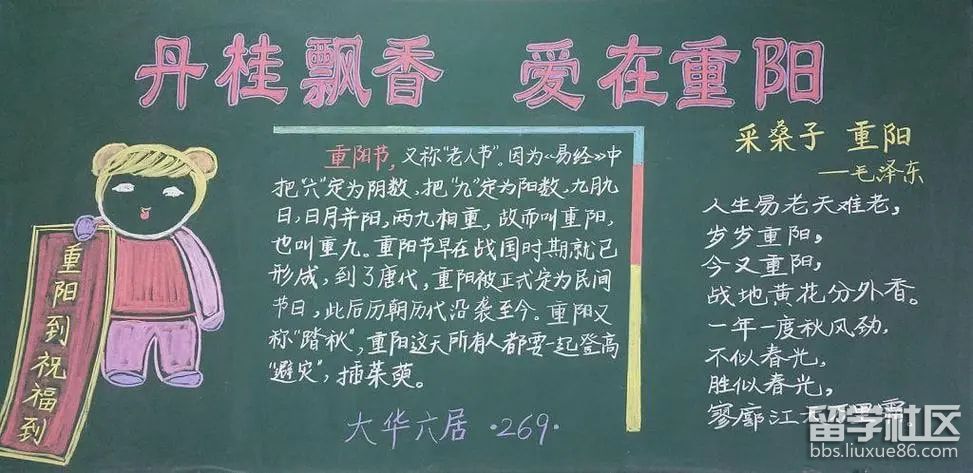 丹桂飘香 爱在重阳
重阳到祝福到
重阳节,又称"老人节"。因为《易经》中
把"六"定为阴数,把"九"定为阳数,九月九
日,日月并阳,两九相重,故而叫重阳,
也叫重九。重阳节早在战国时期就已
形成,到了唐代,重阳被正式定为民间
节日,此后历朝历代沿袭至今。重阳又
称"踏秋",重阳这天所有人都要一起登高
"避灾",插茱萸。
大华六居·269·
采桑子 重阳
——毛泽东
人生易老天难老,
岁岁重阳,
今又重阳,
战地黄花分外香。
一年一度秋风劲,
不似春光,
胜似春光,
寥廓江天万里霜。
留学社区
bbs.liuxue86.com